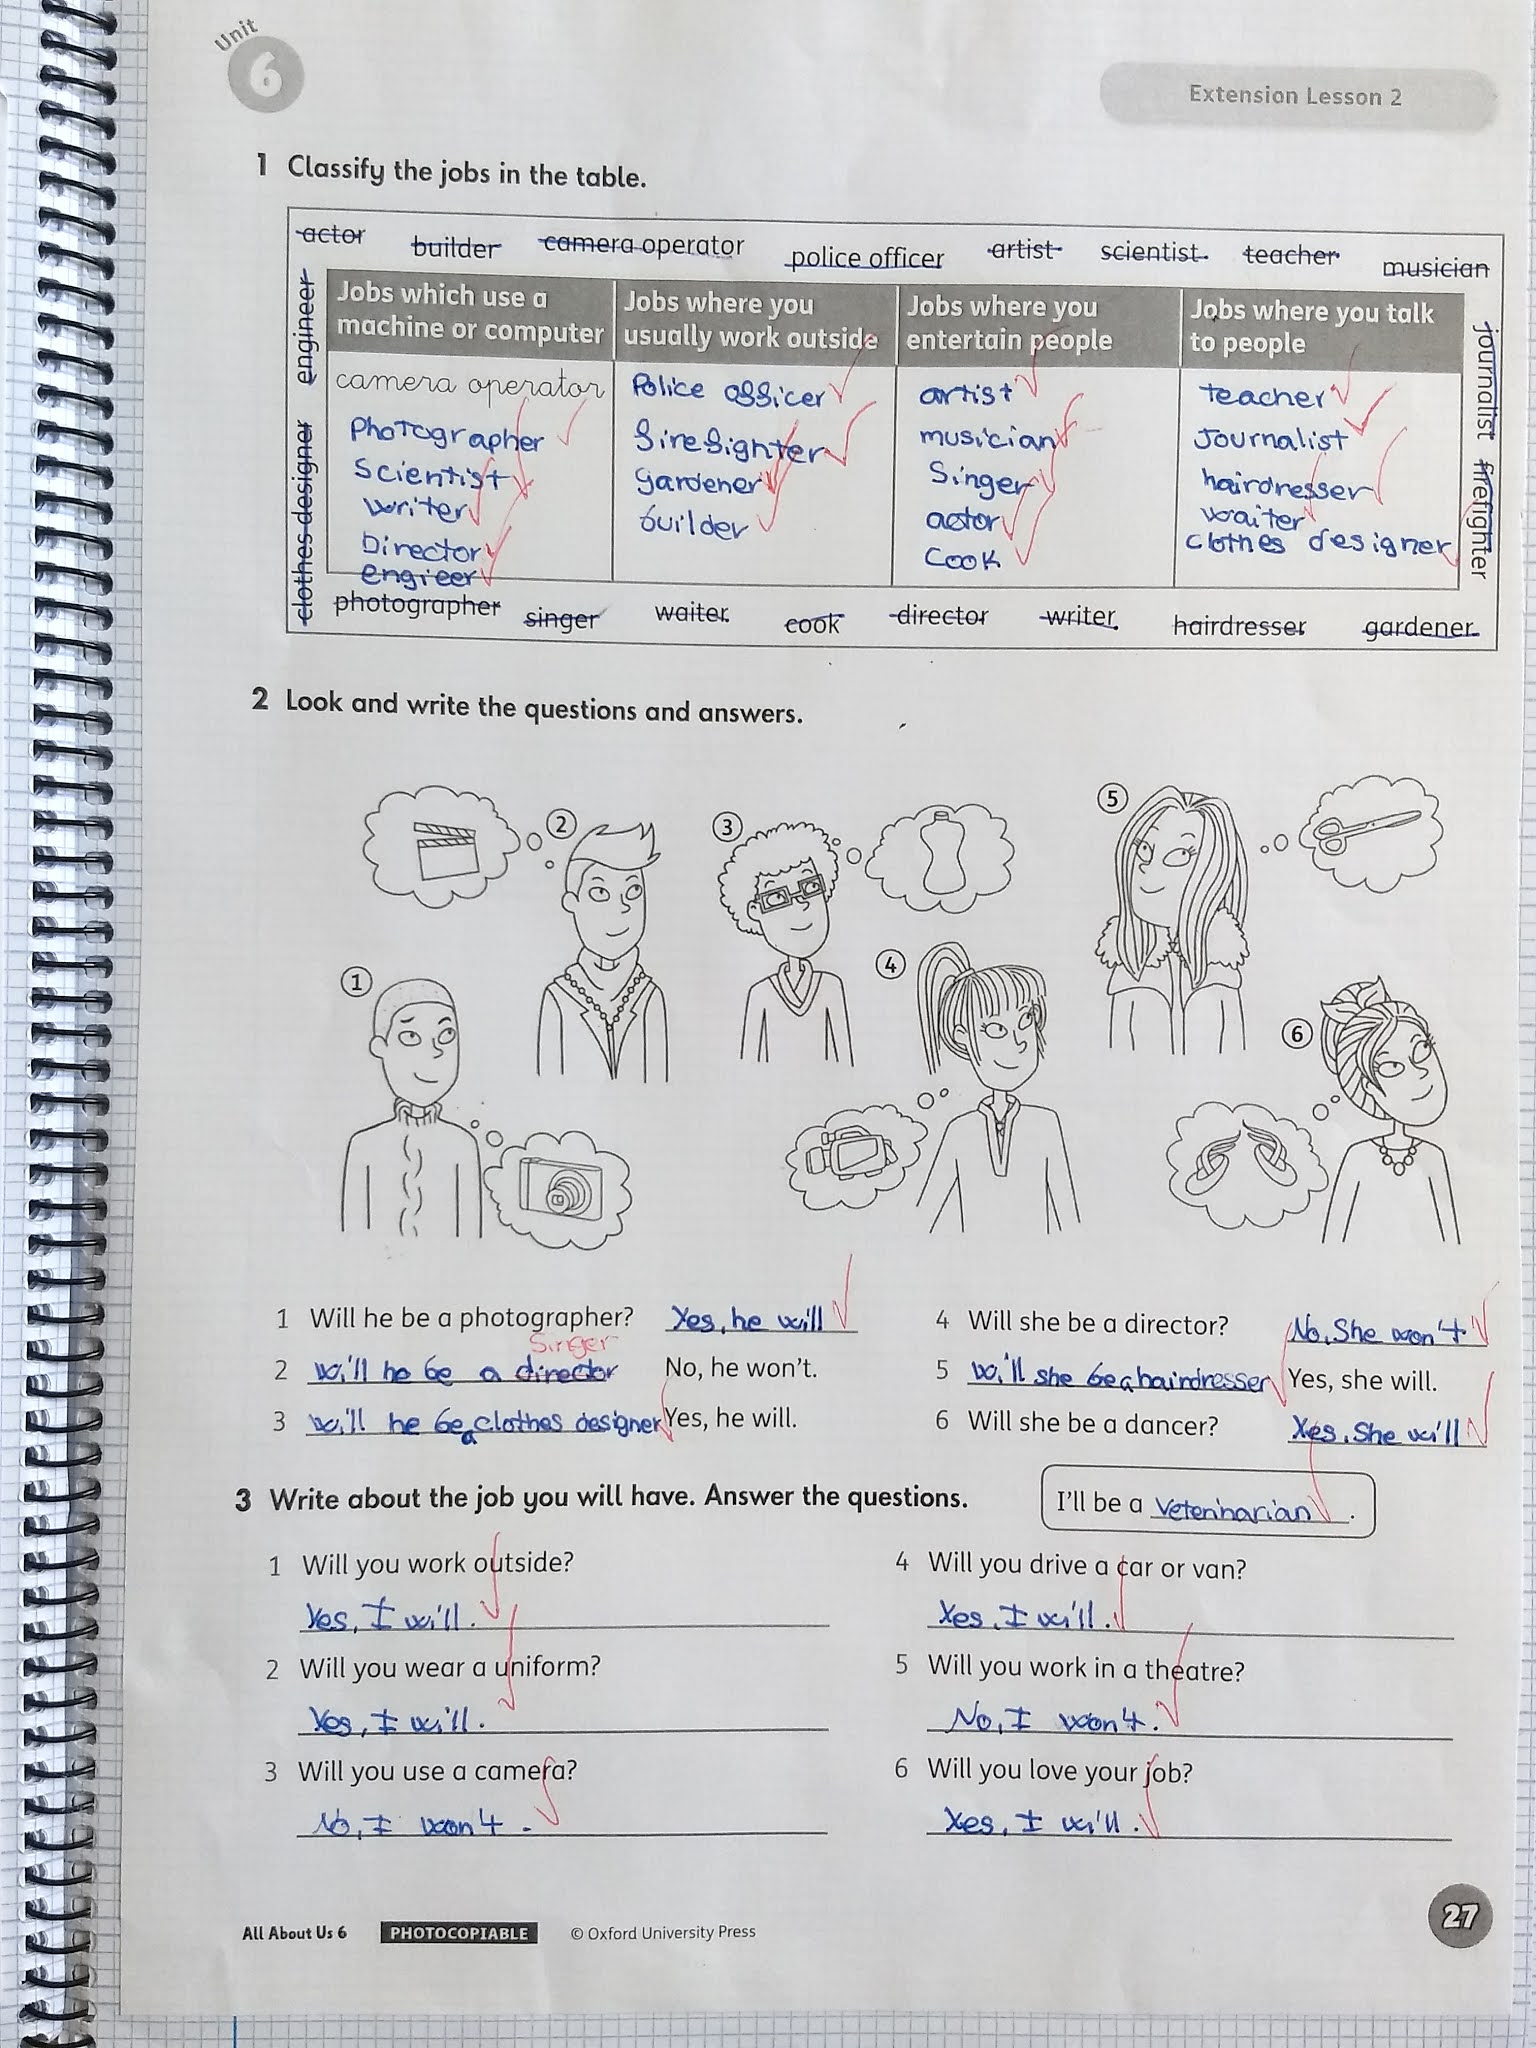 Unit
6
Extension Lesson 2
1 Classify the jobs in the table.
actor builder camera operator police officer artist scientist teacher musician
engineer
clothes designer
journalist
firefighter
Jobs which use a machine or computer
camera operator
Photographer
Scientist
writer
Director
engieer
Jobs where you usually work outside
Police officer
firefighter
gardener
builder
Jobs where you entertain people
artist
musician
Singer
actor
Cook
Jobs where you talk to people
teacher
Journalist
hairdresser
waiter
clothes designer
photographer singer waiter cook director writer hairdresser gardener
2 Look and write the questions and answers.
1
2
3
4
5
6
1 Will he be a photographer? Yes, he will
Singer
2 will he be a director No, he won't.
3 will he be a clothes designer Yes, he will.
4 Will she be a director? No, She won't
5 will she be a hairdresser Yes, she will.
6 Will she be a dancer? Yes, She will
3 Write about the job you will have. Answer the questions.
I'll be a Veterinarian.
1 Will you work outside?
Yes, I will.
2 Will you wear a uniform?
Yes, I will.
3 Will you use a camera?
No, I won't.
4 Will you drive a car or van?
Yes, I will.
5 Will you work in a theatre?
No, I won't.
6 Will you love your job?
Yes, I will.
All About Us 6 PHOTOCOPIABLE © Oxford University Press
27